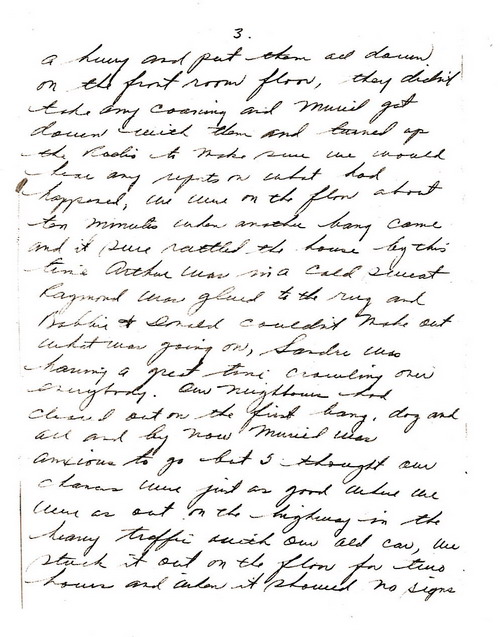 3.
a hurry and put them all down
on the front room floor, they didn't
take any coaxing and Muriel got
down with them and turned up
the Radio to make sure we would
hear any reports on what had
happened, we were on the floor about
ten minutes when another bang came
and it sure rattled the house by this
time Arthur was in a cold sweat
Raymond was glued to the rug and
Bobbie & Donald couldn't make out
what was going on, Sandra was
having a great time crawling over
everybody. Our neighbours had
cleared out on the first bang, dog and
all and by now Muriel was
anxious to go but I thought our
chances were just as good where we
were as out on the highway in the
heavy traffic with our old car, we
stuck it out on the floor for two
hours and when it showed no signs